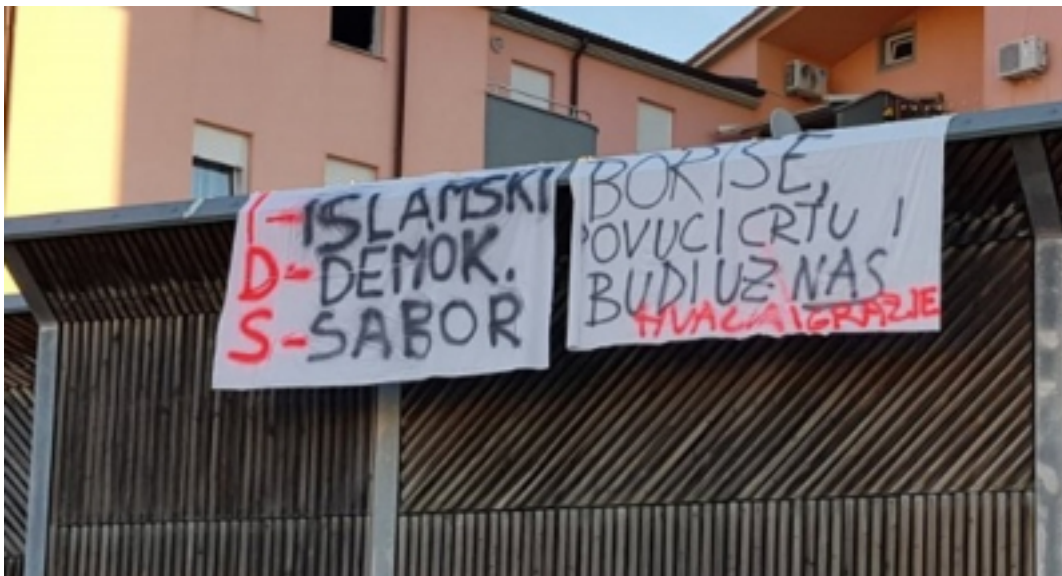 I-ISLAMSKI
D-DEMOK.
S-SABOR
BORISE,
POVUCI CRTU I
BUDI UZ NAS
HVALA I GRAZIE